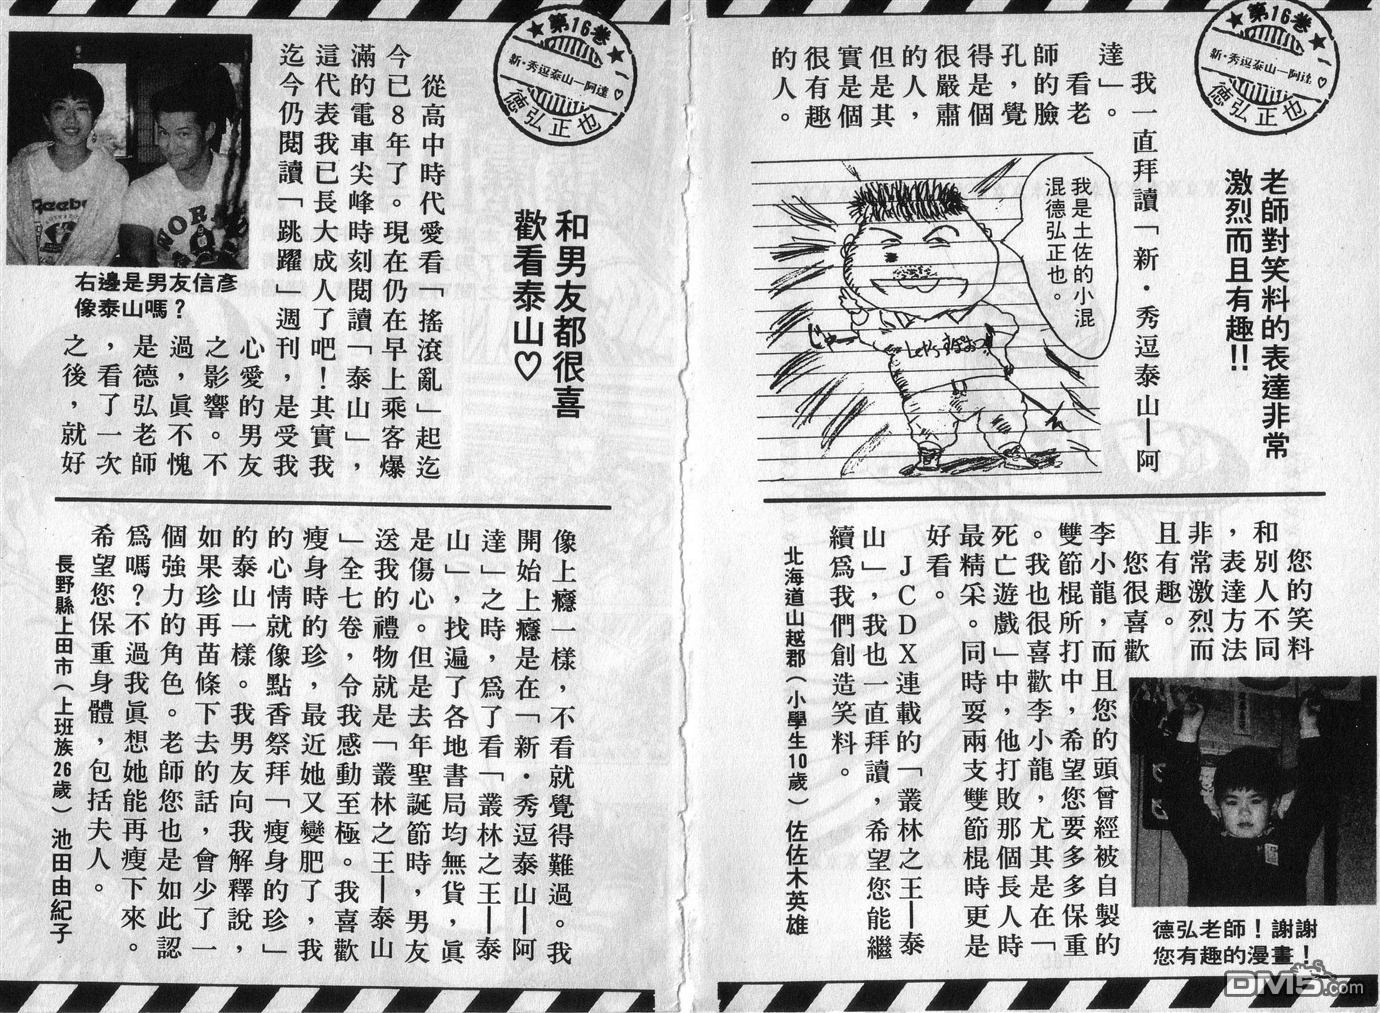 ★第16巻★
新・秀逗泰山—阿達♡
德弘正也
老師對笑料的表達非常
激烈而且有趣!!
我一直拜讀「新・秀逗泰山—阿
達」。
看老
師的臉
孔，覺
得是個
很嚴肅
的人，
但是其
實是個
很有趣
的人。
我是土佐的小混
混德弘正也。
Let's
您的笑料
和別人不同
，表達方法
非常激烈而
且有趣。
您很喜歡
李小龍，而且您的頭曾經被自製的
雙節棍所打中，希望您要多多保重
。我也很喜歡李小龍，尤其是在「
死亡遊戲」中，他打敗那個長人時
最精采。同時耍兩支雙節棍時更是
好看。
JCDX連載的「叢林之王—泰
山」，我也一直拜讀，希望您能繼
續爲我們創造笑料。
北海道山越郡（小學生10歲）佐佐木英雄
德弘老師！謝謝
您有趣的漫畫！
★第16巻★
新・秀逗泰山—阿達♡
德弘正也
和男友都很喜
歡看泰山♡
從高中時代愛看「搖滾亂」起迄
今已8年了。現在仍在早上乘客爆
滿的電車尖峰時刻閱讀「泰山」，
這代表我已長大成人了吧！其實我
迄今仍閱讀「跳躍」週刊，是受我
心愛的男友
之影響。不
過，眞不愧
是德弘老師
，看了一次
之後，就好
右邊是男友信彥
像泰山嗎？
像上癮一樣，不看就覺得難過。我
開始上癮是在「新・秀逗泰山—阿
達」之時，爲了看「叢林之王—泰
山」，找遍了各地書局均無貨，眞
是傷心。但是去年聖誕節時，男友
送我的禮物就是「叢林之王—泰山
」全七卷，令我感動至極。我喜歡
瘦身時的珍，最近她又變肥了，我
的心情就像點香祭拜「瘦身的珍」
的泰山一樣。我男友向我解釋說，
如果珍再苗條下去的話，會少了一
個強力的角色。老師您也是如此認
爲嗎？不過我眞想她能再瘦下來。
希望您保重身體，包括夫人。
長野縣上田市（上班族26歲）池田由紀子
Reebok
DM5.com